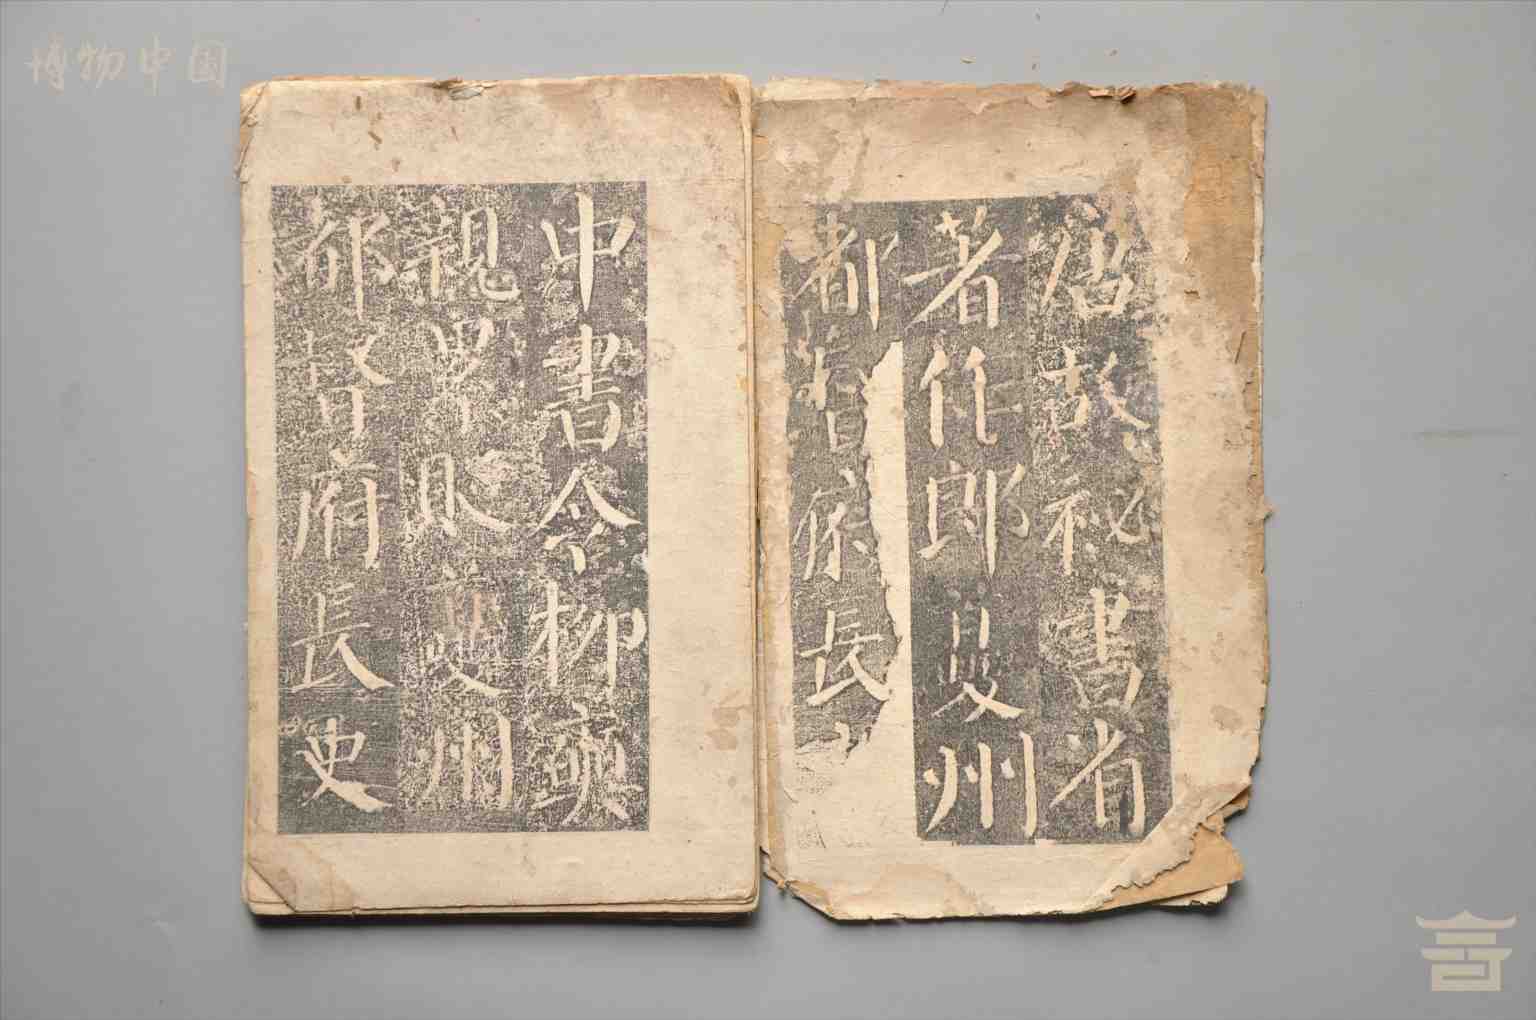 博物中国
唐故祕書省
著作郎夔州
都督府長
中書令柳奭
親累貶夔州
都督府長史